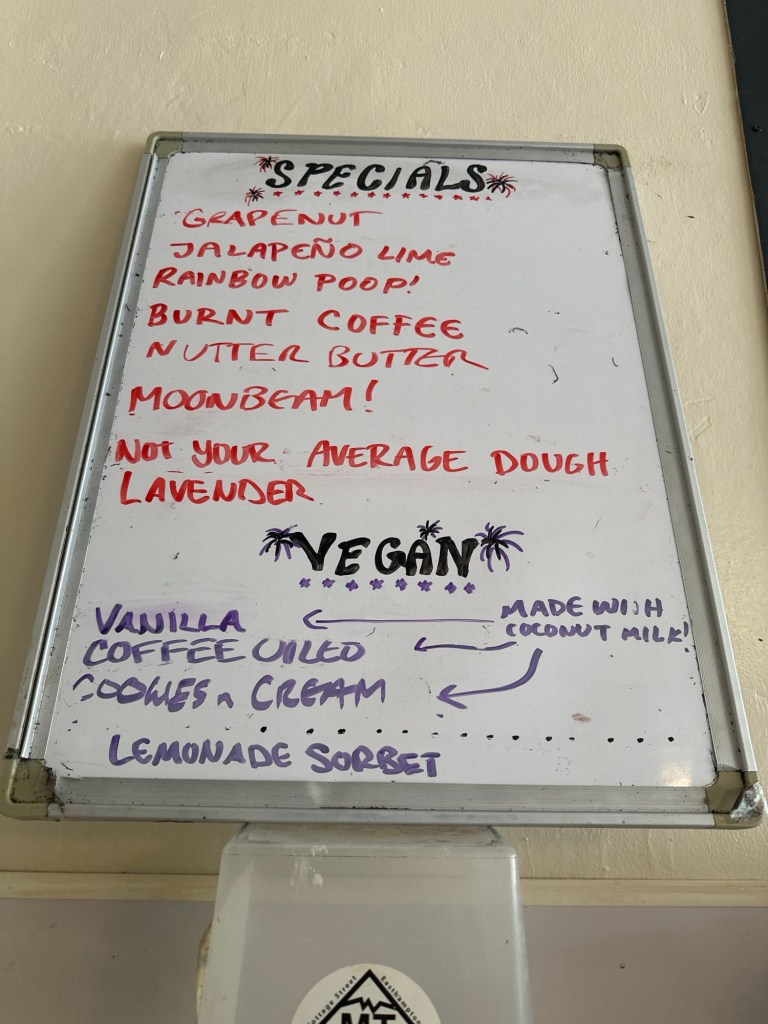 SPECIALS
GRAPENUT
JALAPEÑO LIME
RAINBOW POOP!
BURNT COFFEE
NUTTER BUTTER
MOONBEAM!
NOT YOUR AVERAGE DOUGH
LAVENDER
VEGAN
VANILLA
MADE WITH
COCONUT MILK!
COFFEE
COOKIES n CREAM
LEMONADE SORBET
Cottage Street Easthampton
MT